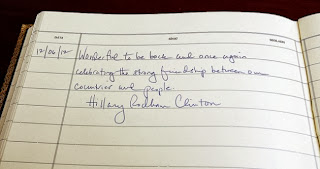 DATE NAME
12/06/12 Wonderful to be back and once again
celebrating the strong friendship between our
countries and people.
Hillary Rodham Clinton